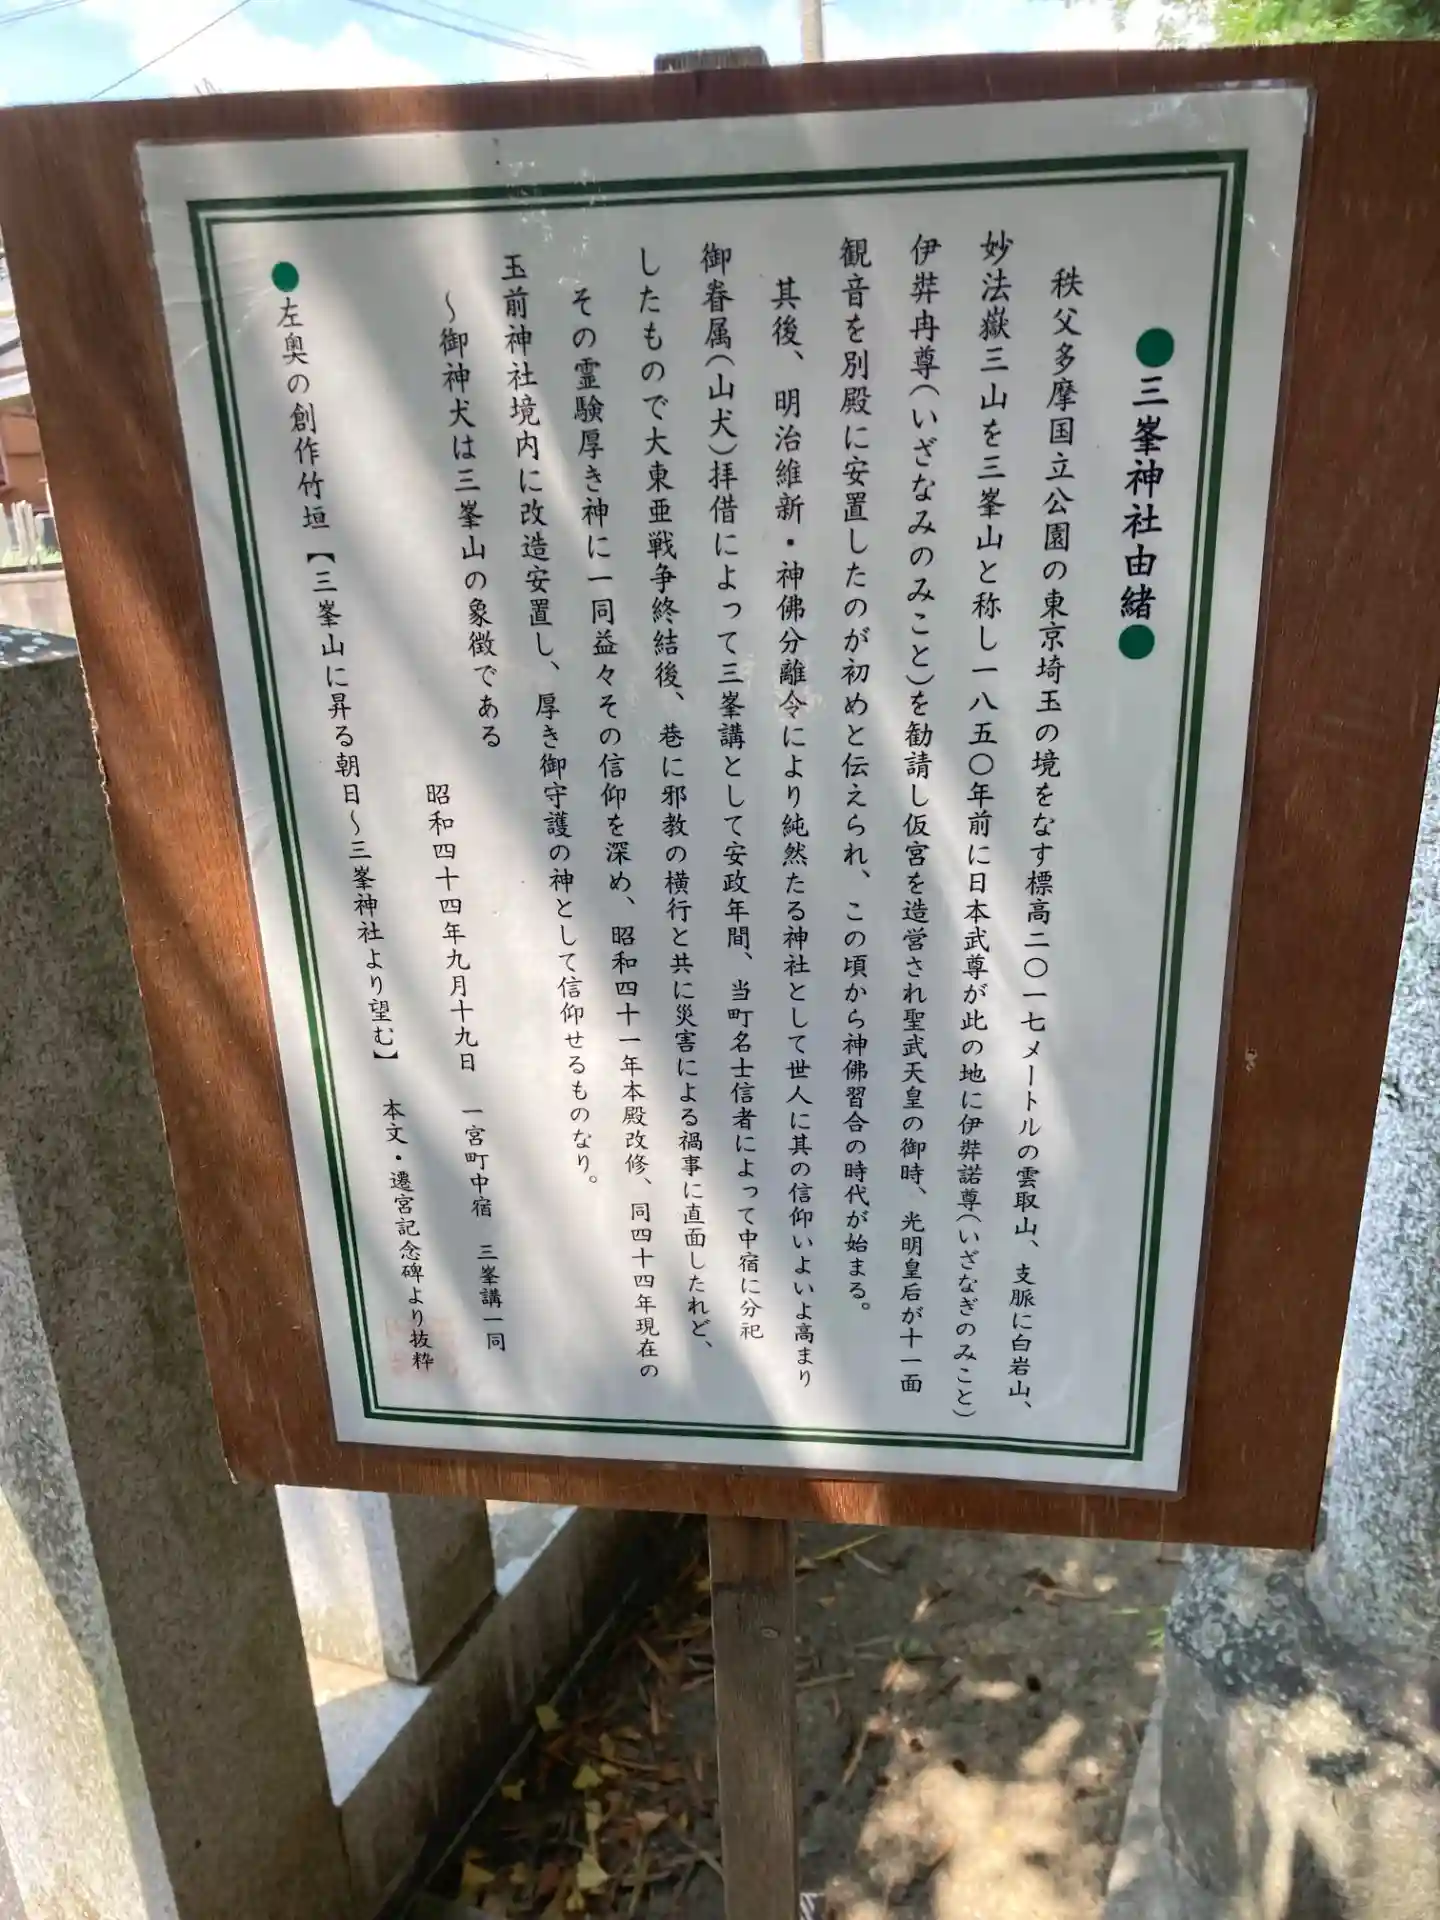 ●三峯神社由緒●
秩父多摩国立公園の東京埼玉の境をなす標高二〇一七メートルの雲取山、支脈に白岩山、
妙法嶽三山を三峯山と称し一八五〇年前に日本武尊が此の地に伊弉諾尊（いざなぎのみこと）
伊弉冉尊（いざなみのみこと）を勧請し仮宮を造営され聖武天皇の御時、光明皇后が十一面
観音を別殿に安置したのが初めと伝えられ、この頃から神佛習合の時代が始まる。
其後、明治維新・神佛分離令により純然たる神社として世人に其の信仰いよいよ高まり
御眷属（山犬）拝借によって三峯講として安政年間、当町名士信者によって中宿に分祀
したもので大東亜戦争終結後、巷に邪教の横行と共に災害による禍事に直面したれど、
その霊験厚き神に一同益々その信仰を深め、昭和四十一年本殿改修、同四十四年現在の
玉前神社境内に改造安置し、厚き御守護の神として信仰せるものなり。
～御神犬は三峯山の象徴である
昭和四十四年九月十九日　一宮町中宿　三峯講一同
●左奥の創作竹垣【三峯山に昇る朝日～三峯神社より望む】　本文・遷宮記念碑より抜粋